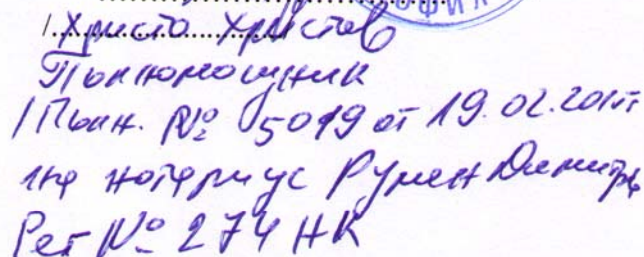 ФИЯ
/Христо Христов
Пълномощник
/Пълн. № 5019 от 19.02.201
на нотариус Румен Димитров
Рег № 274 НК